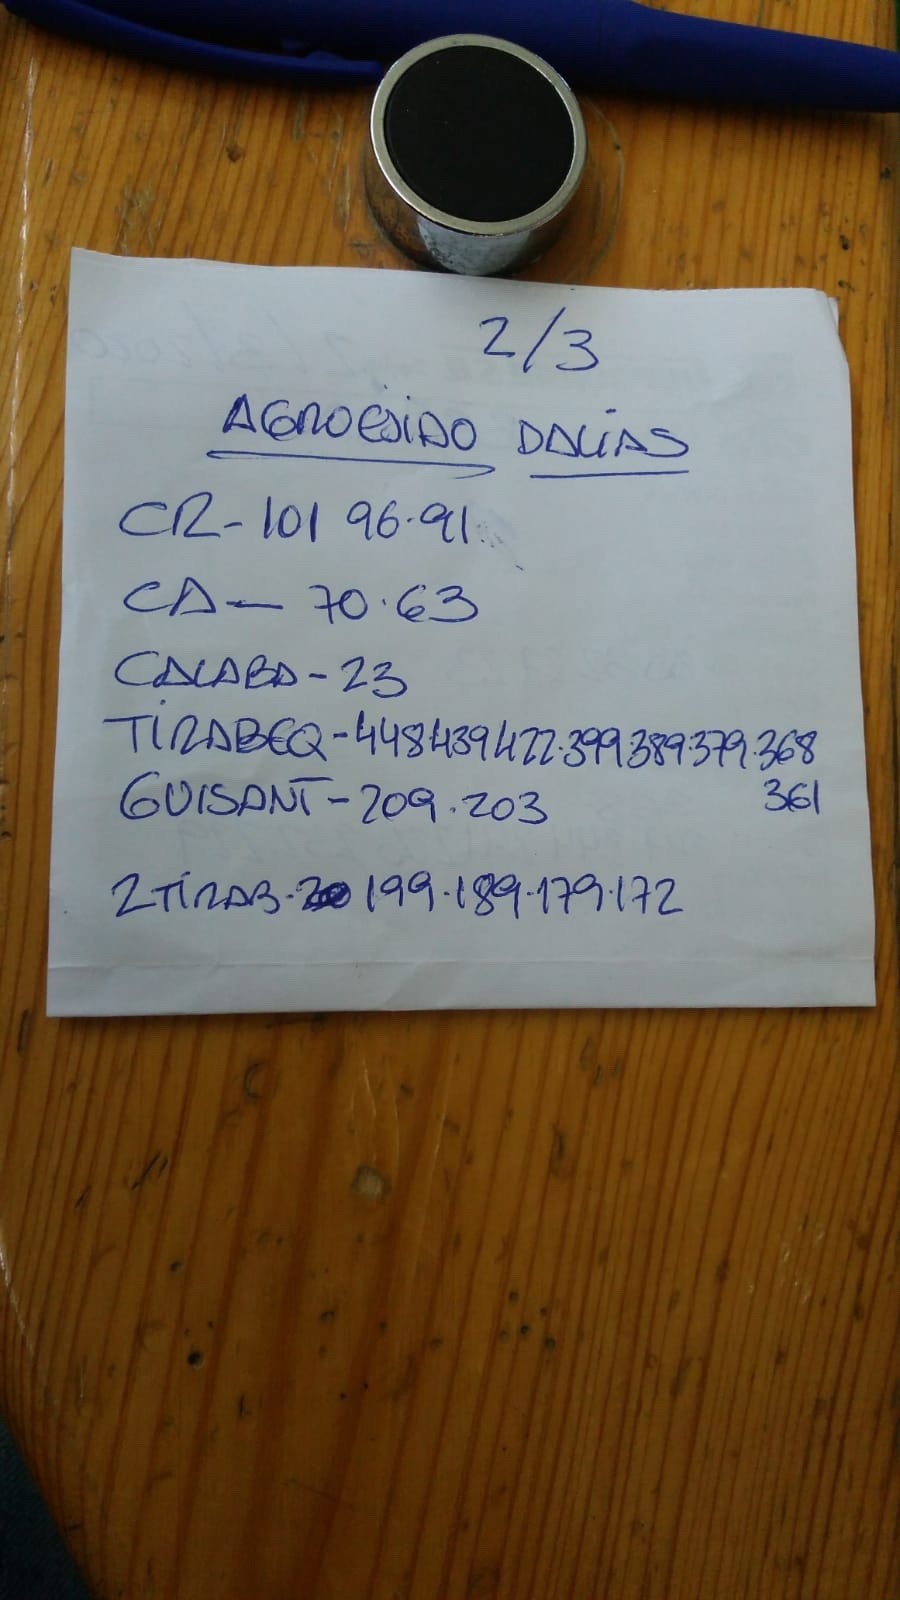 2/3
AGROEJIDO DALIAS
CR-101 96.91
CA-70.63
CALABA-23
TIRABEQ-448 439 422.399.389.379.368
361
GUISANT-209.203
2TIRAB. 199.189.179.172